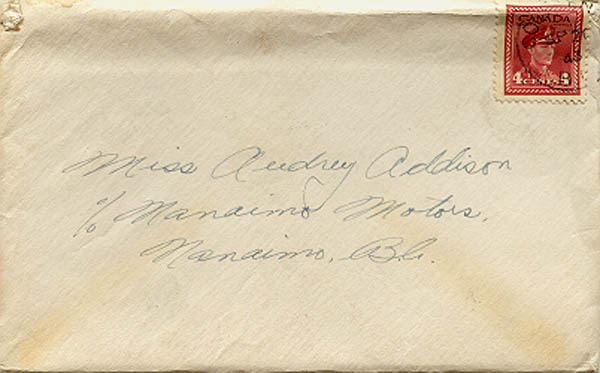 CANADA
4 CENTS 4
Miss Audrey Addison
c/o Nanaimo Motors,
Nanaimo, B.C.